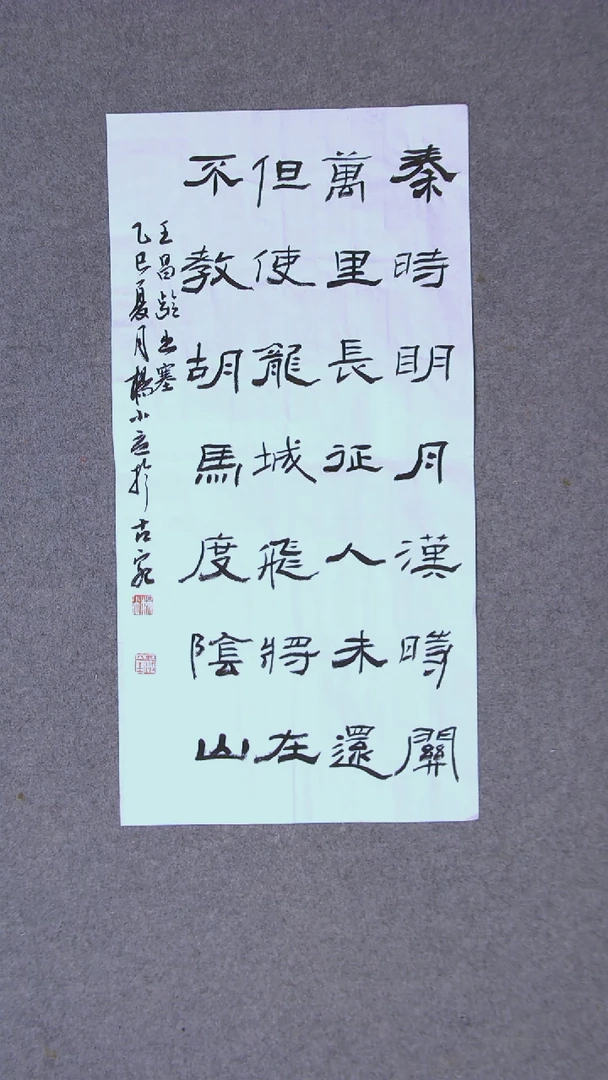 秦時明月漢時關
萬里長征人未還
但使龍城飛將在
不教胡馬度陰山
王昌齡出塞
乙巳夏月楊小立於古宛